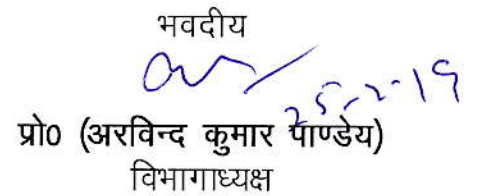 भवदीय
25-2-19
प्रो0 (अरविन्द कुमार पाण्डेय)
विभागाध्यक्ष